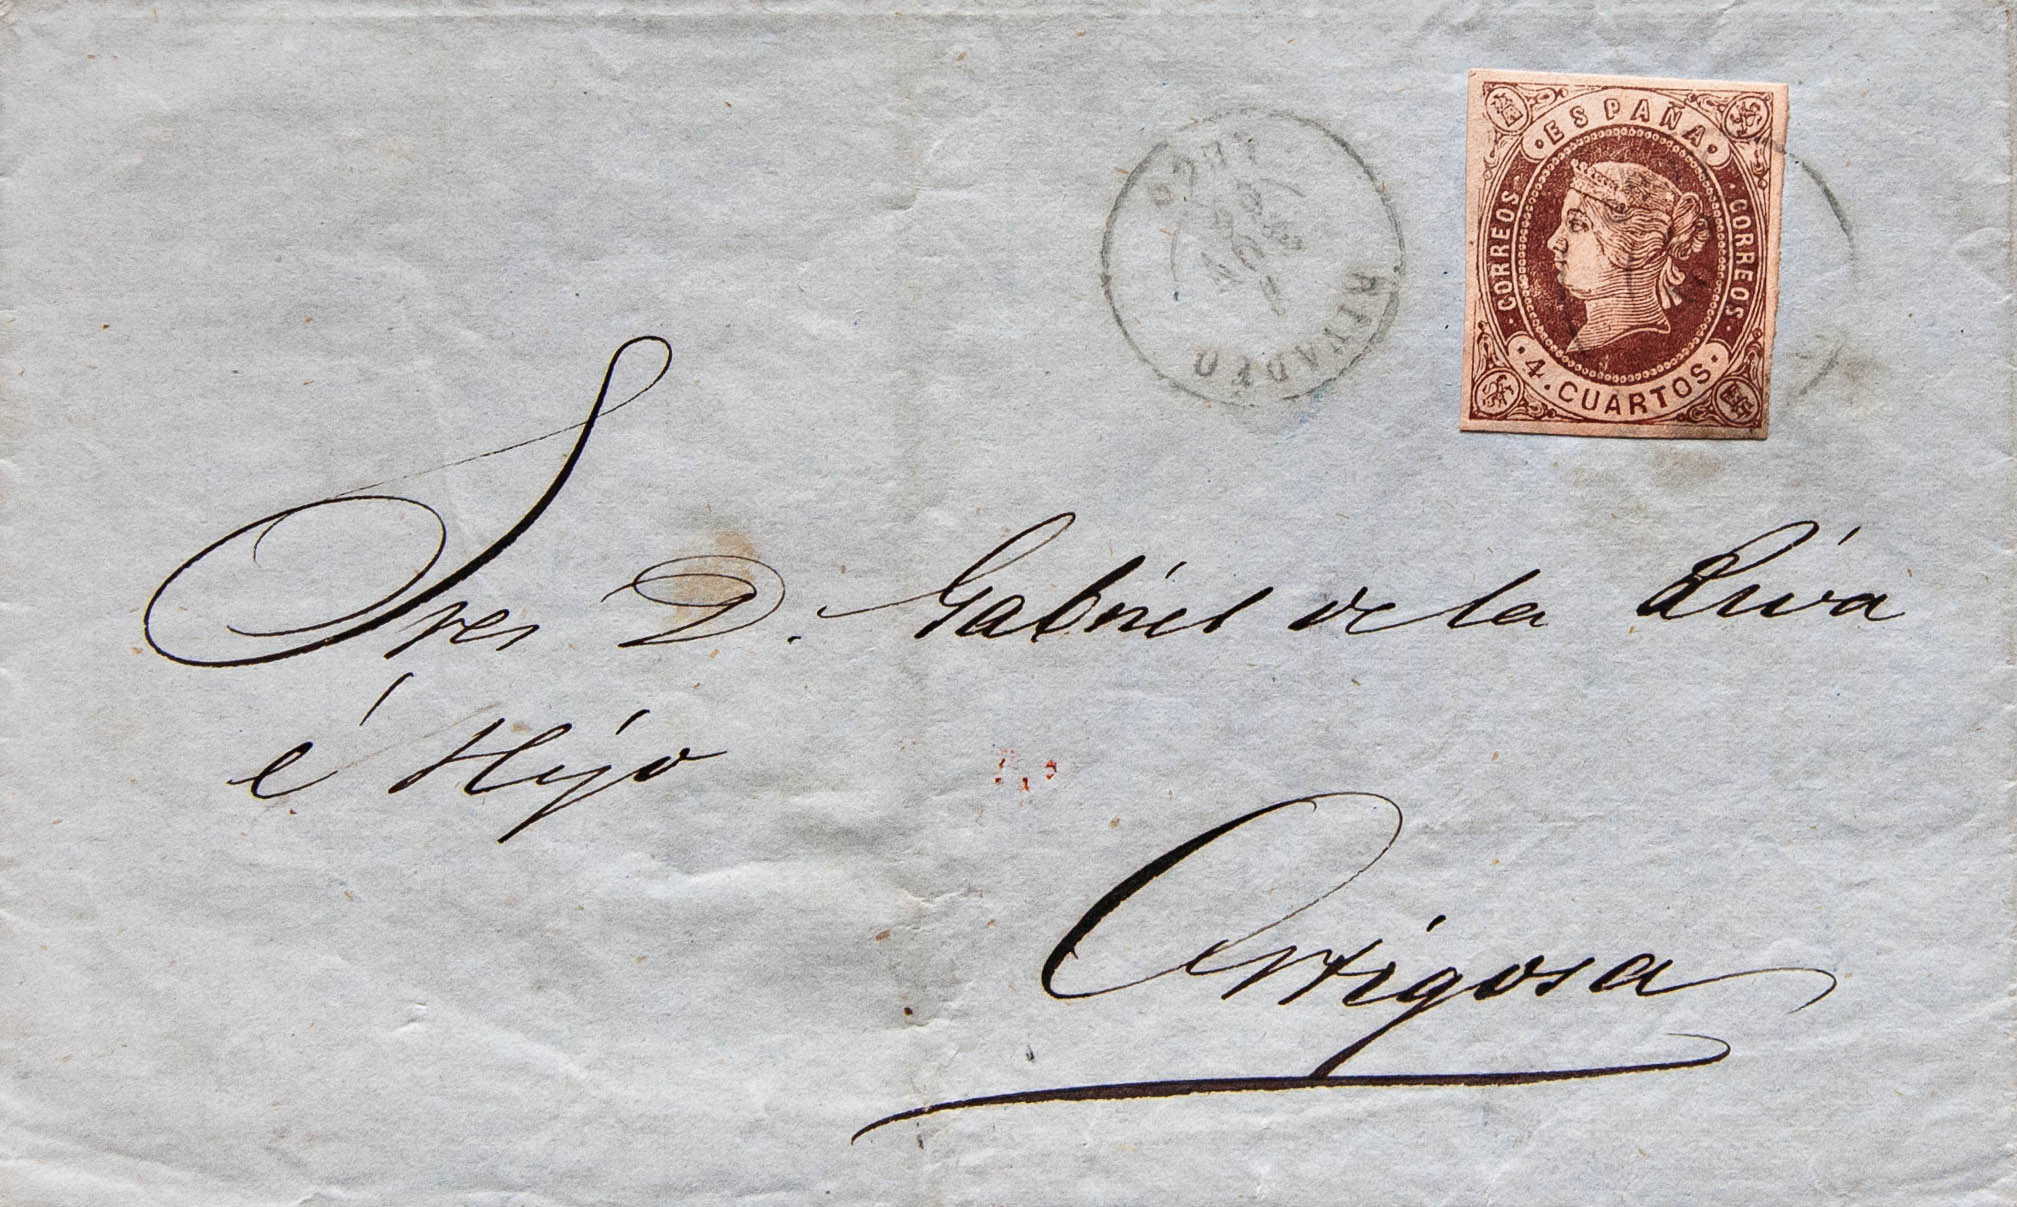 ESPAÑA
CORREOS
CORREOS
4. CUARTOS
LUGO
NOV
RIVADEO
Sres D. Gabriel de la Riva
é Hijo
Ortigosa